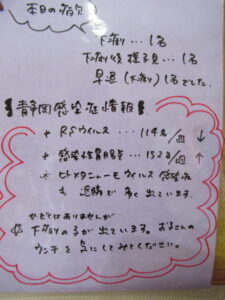 本日の病欠
下痢り … 1名
下痢り後様子見 … 1名
早退(下痢り)1名でした.
【静岡感染症情報】
+ RSウイルス … 114名/週 ↓
+ 感染性胃腸炎 … 152名/週 ↑
+ ヒトメタニューモウイルス感染症
も 近隣で 多く出ています.
かぜではありませんが
☆ 下痢りの子が出ています。お子さんの
ウンチを気にしてみてください。